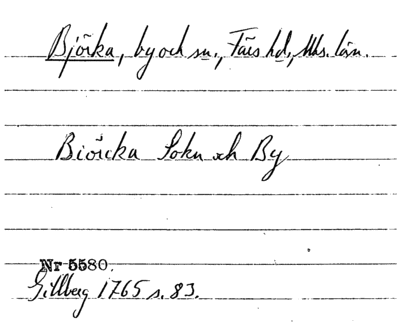 Björka, by och sn., Färs hd, Mhs. län.
Biörcka Sokn och By
Nr 5580.
Gillberg 1765 s. 83.